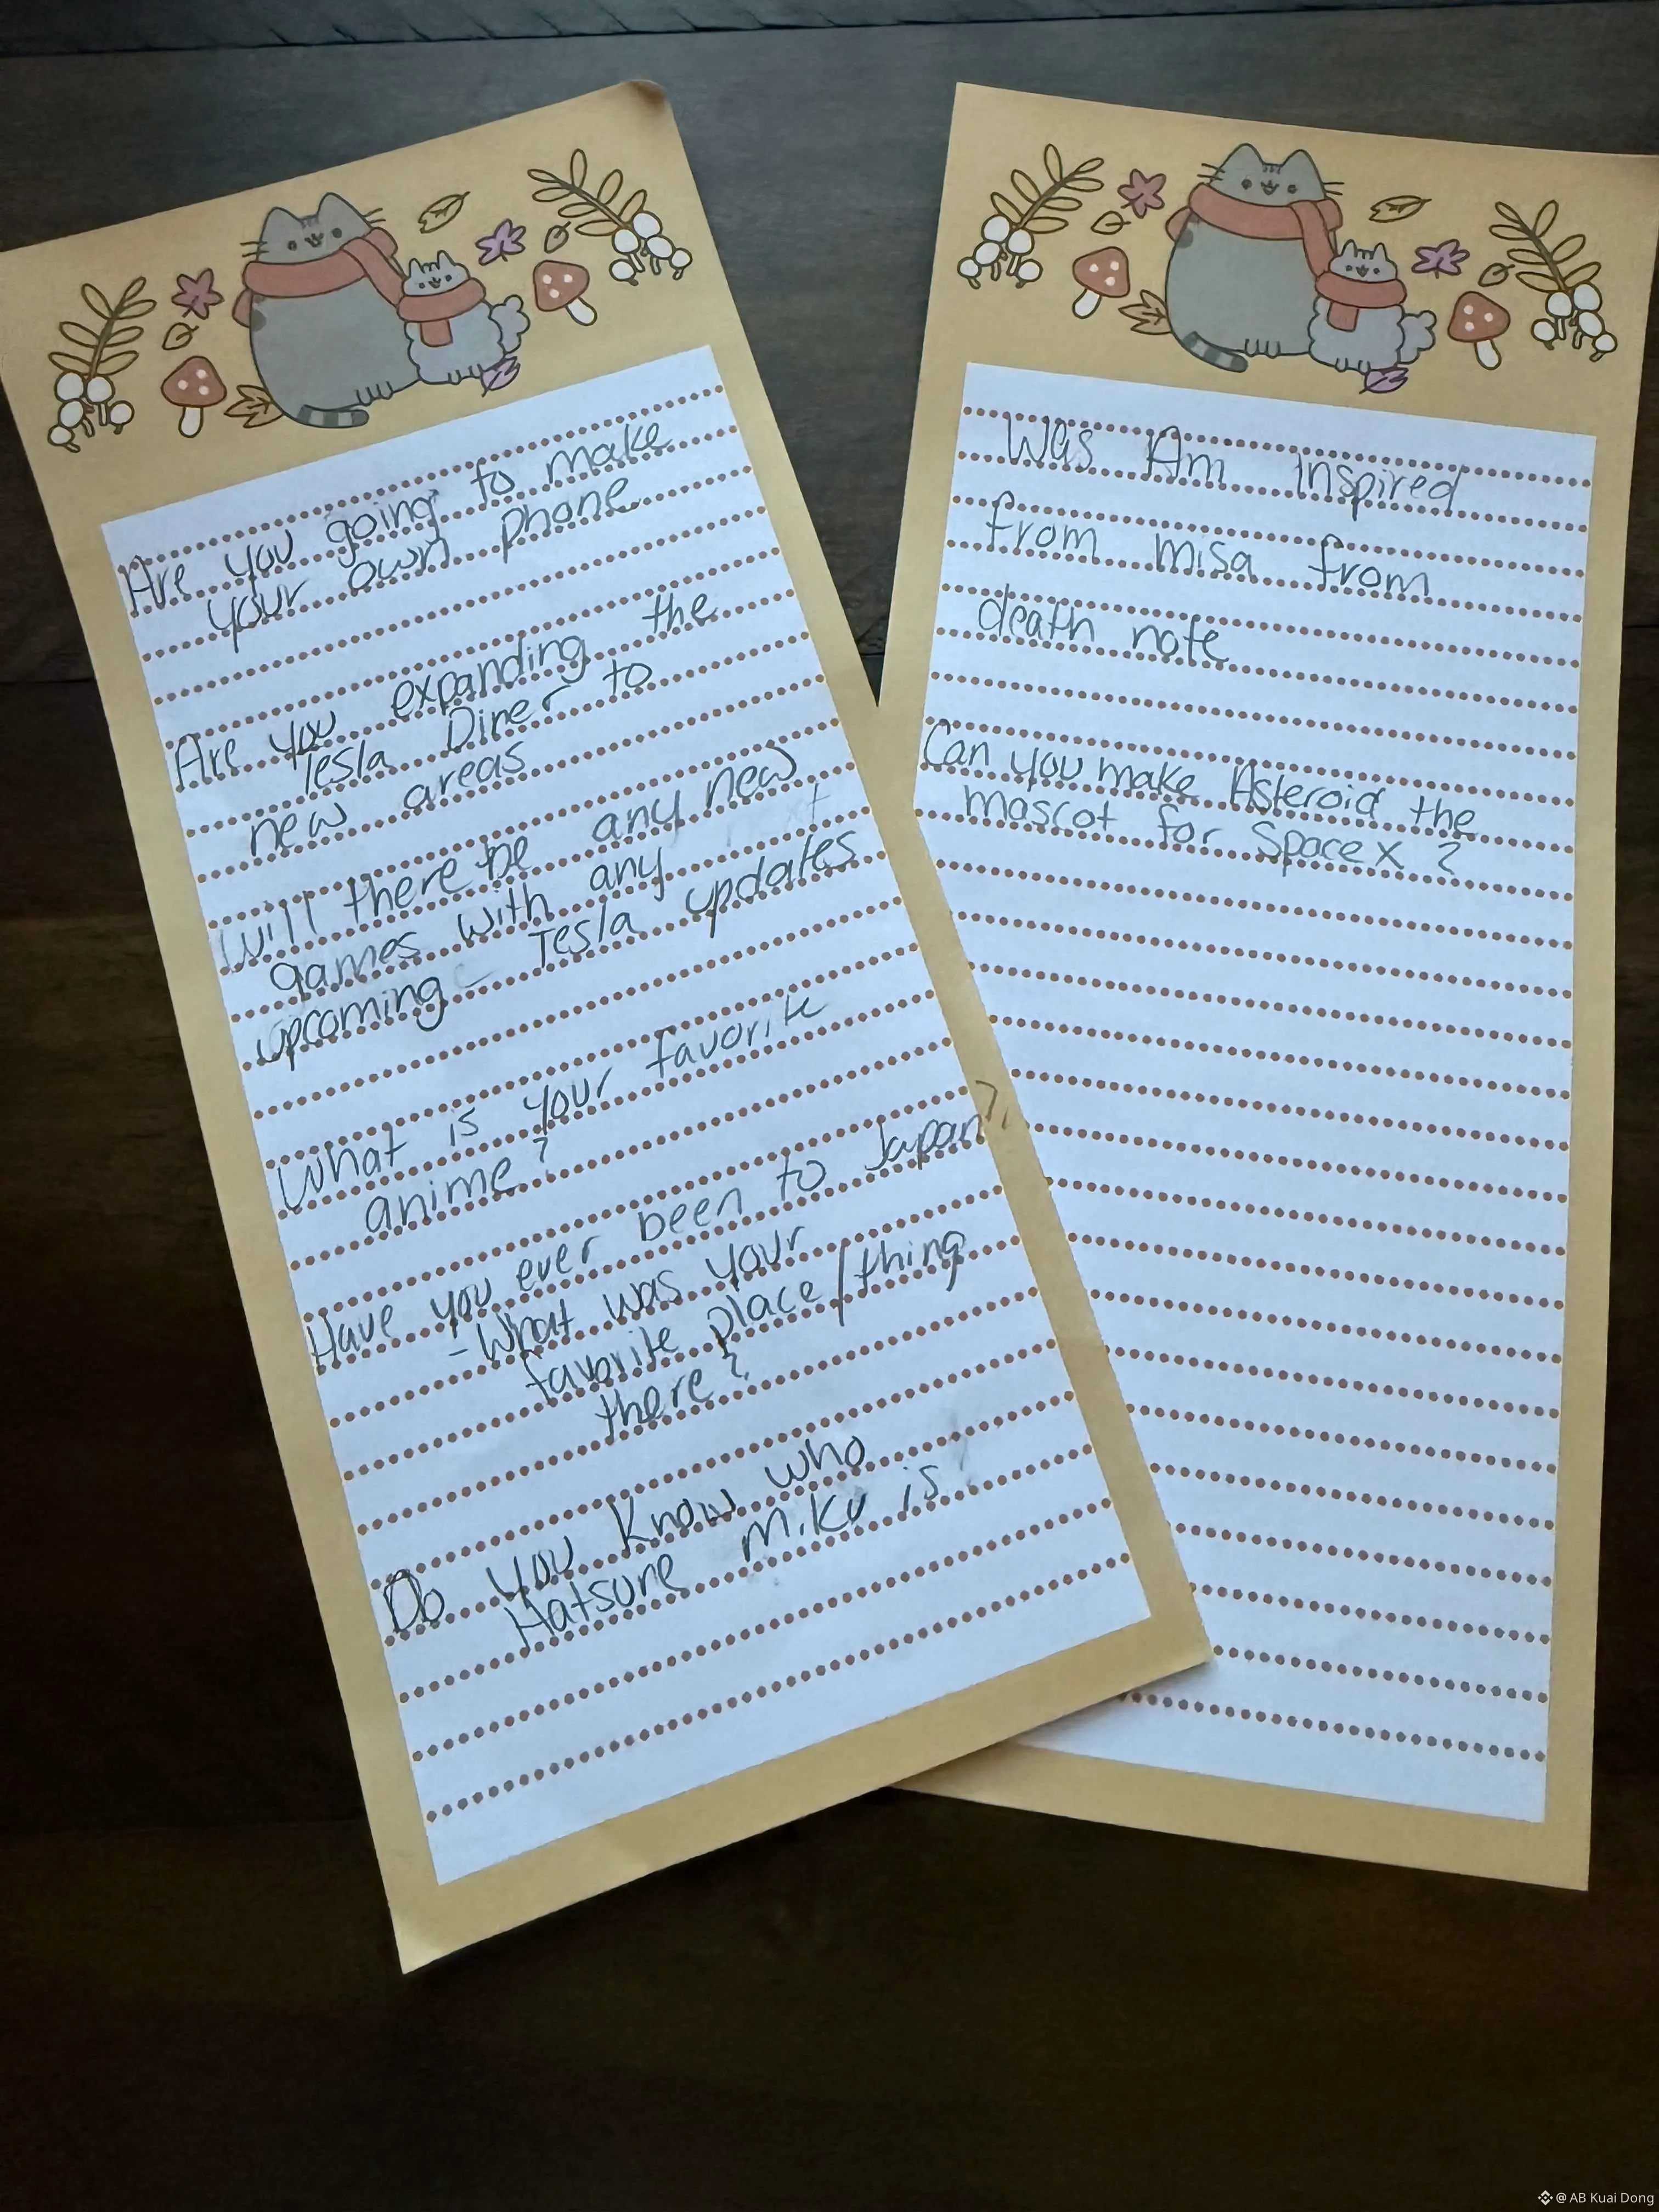 Are you going to make
your own phone
Are you expanding the
Tesla Diner to
new areas
Will there be any new
games with any
upcoming Tesla updates
What is your favorite
anime?
Have you ever been to Japan?
- What was your
favorite place/thing
there?
Do you know who
Hatsune Miku is
Was Am Inspired
from misa from
death note
Can you make Asteroid the
mascot for Space X ?
@ AB Kuai Dong